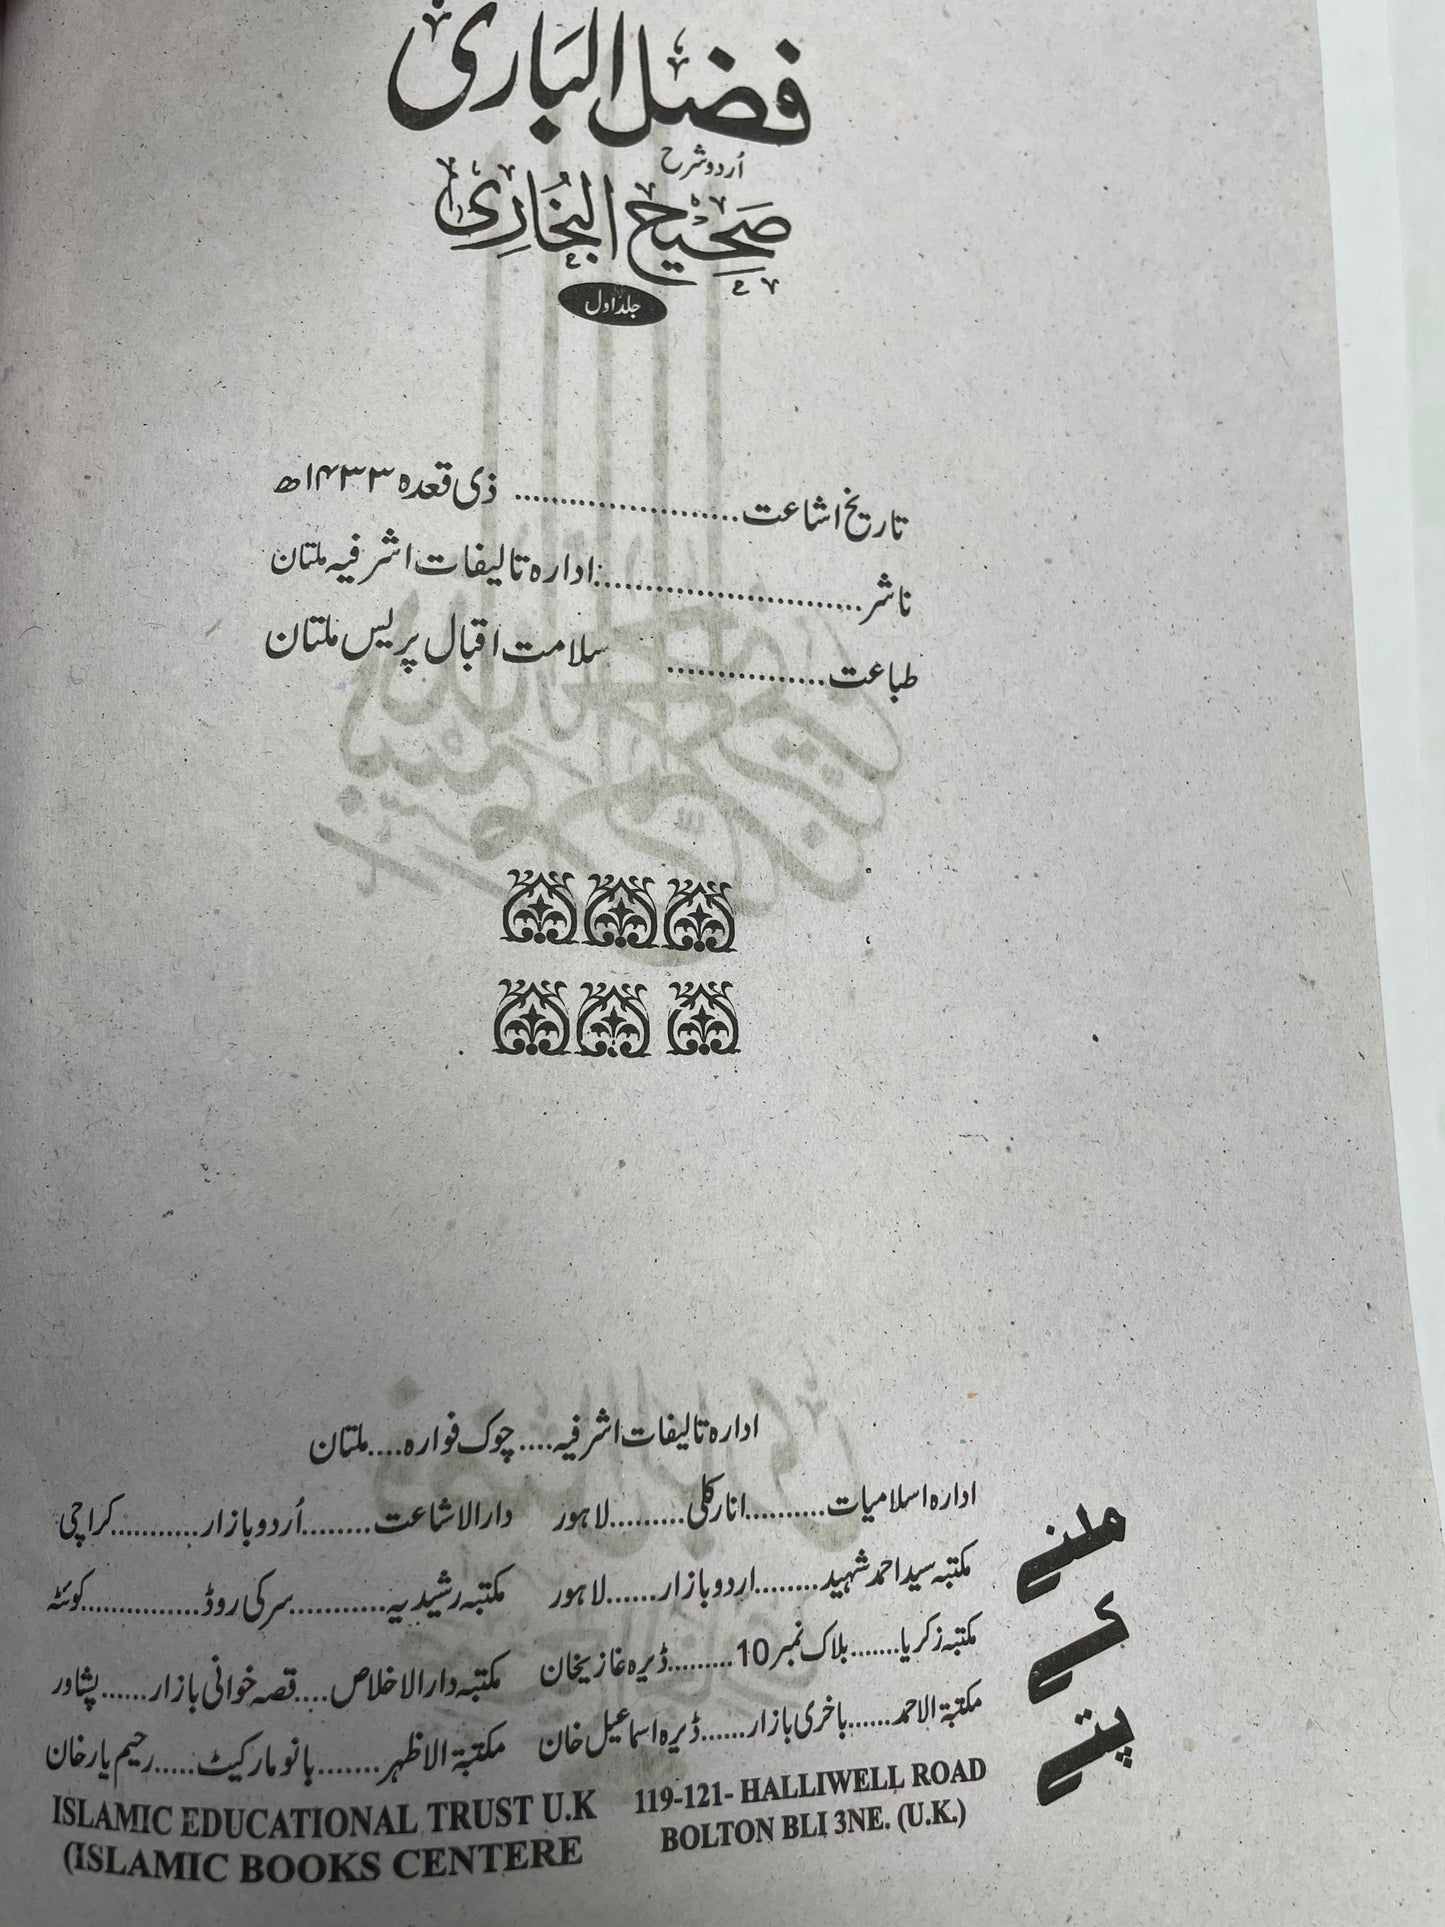 فضل الباری
اُردو شرح
صَحِیح البُخَارِی
جلد اول
تاریخ اشاعت...................... ذی قعدہ ۱۴۳۳ھ
ناشر..........................ادارہ تالیفات اشرفیہ ملتان
طباعت................ سلامت اقبال پریس ملتان
ملنے کے پتے
ادارہ تالیفات اشرفیہ....چوک فوارہ....ملتان
ادارہ اسلامیات..........انارکلی.........لاہور دارالاشاعت........اُردو بازار...........کراچی
مکتبہ سید احمد شہید........اردو بازار......لاہور مکتبہ رشیدیہ...........سرکی روڈ..............کوئٹہ
مکتبہ زکریا.......بلاک نمبر 10.........ڈیرہ غازیخان مکتبہ دارالاخلاص....قصہ خوانی بازار......پشاور
مکتبۃ الاحمد......باخری بازار......ڈیرہ اسماعیل خان مکتبۃ الاظہر.......بانو مارکیٹ.....رحیم یار خان
ISLAMIC EDUCATIONAL TRUST U.K 119-121- HALLIWELL ROAD
(ISLAMIC BOOKS CENTERE BOLTON BLI 3NE. (U.K.)